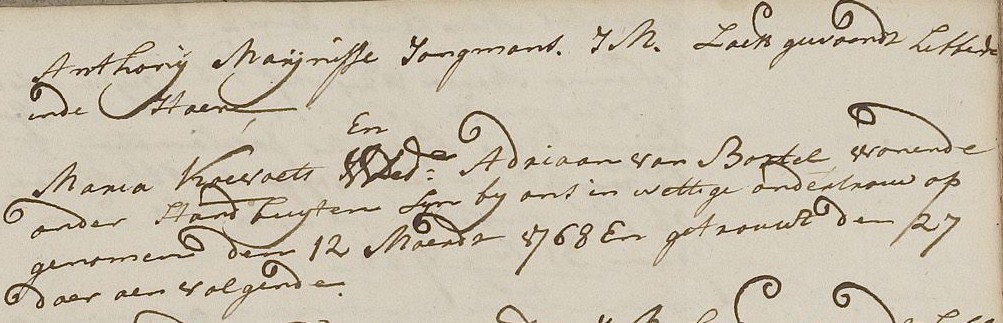 Anthonij Marijnisse Jongmans. J M. Laets gewoondt hebbende
inde Haere
En
Maria Koevoets Wede: Adriaan van Boxtel wonende
onder Hand huytem Syn by ons in wettige ondertrouw op
genomen den 12 Maerdt 1768 En getrouwt den 27
daer aen volgende.